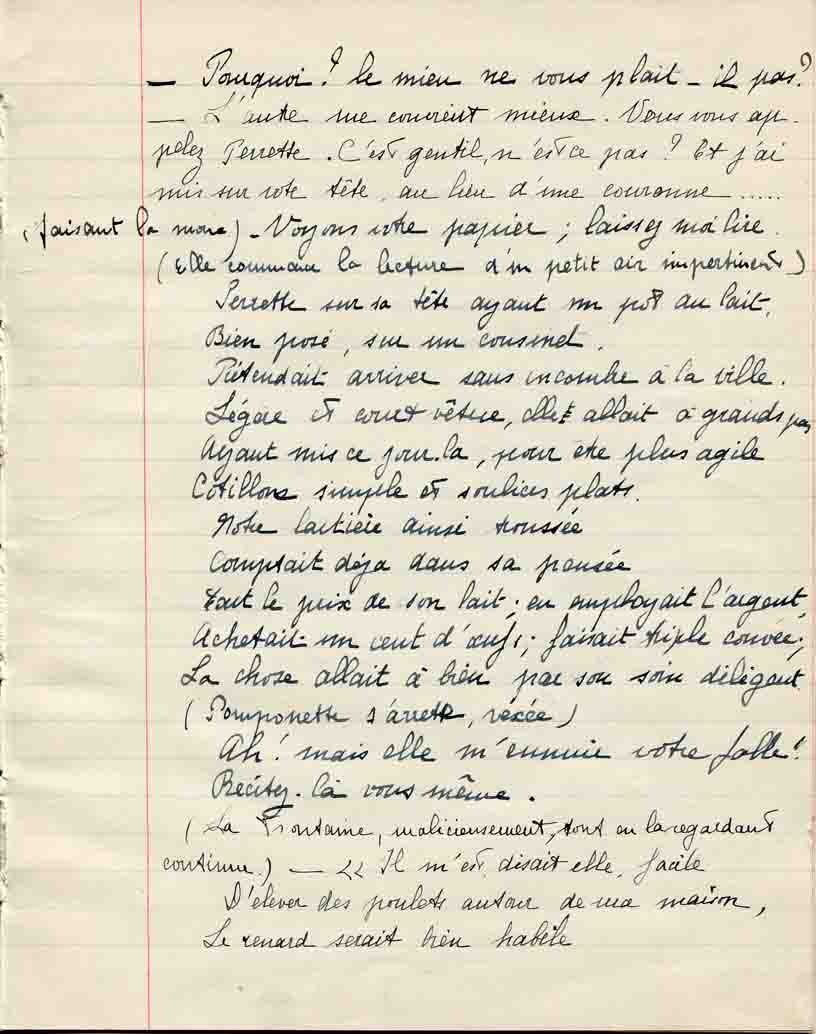 — Pourquoi? le mien ne vous plait-il pas?
— L'autre me convient mieux. Vous vous ap-
pelez Perrette. C'est gentil, n'est ce pas? Et j'ai
mis sur votre tête, au lieu d'une couronne .....
(faisant la moue) - Voyons votre papier; laissez moi lire.
(Elle commence la lecture d'un petit air impertinent)
Perrette sur sa tête ayant un pot au lait,
Bien posé, sur un coussinet.
Prétendait arriver sans encombre à la ville.
Légère et court vêtue, elle allait à grands pas
Ayant mis ce jour-là, pour être plus agile
Cotillons simple et souliers plats.
Notre laitière ainsi troussée
Comptait déja dans sa pensée
Tout le prix de son lait; en employait l'argent,
Achetait un cent d'œufs; faisait triple couvée;
La chose allait à bien par son soin déligent
(Pomponette s'arrête, vexée)
Ah! mais elle m'ennuie votre fable!
Récitez-là vous même.
(La Frontaine, malicieusement, tout en la regardant
continue.) — << Il m'est, disait elle, facile
D'élever des poulets autour de ma maison,
Le renard serait bien habile